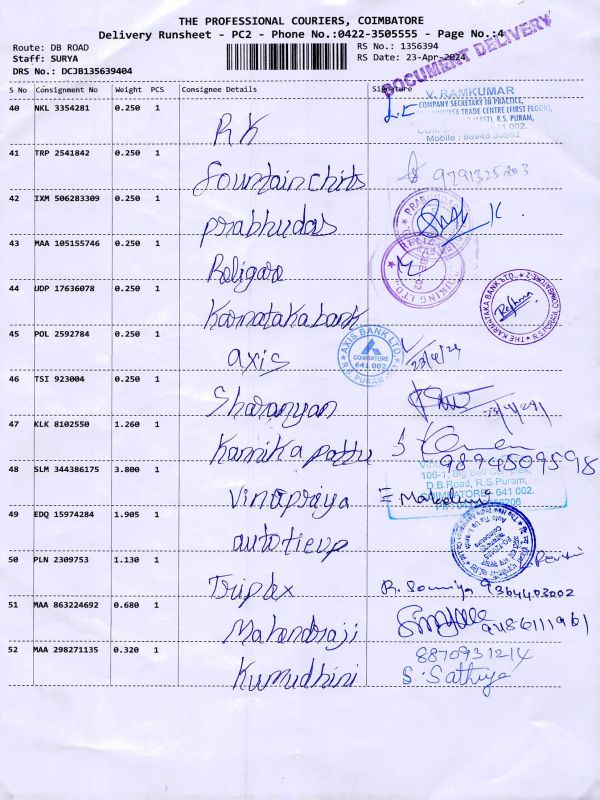 THE PROFESSIONAL COURIERS, COIMBATORE
Delivery Runsheet - PC2 - Phone No.:0422-3505555 - Page No.:4
Route: DB ROAD
Staff: SURYA
DRS No.: DCJB135639404
RS No.: 1356394
RS Date: 23-Apr-2024
DOCUMENT DELIVERY
S No Consignment No Weight PCS Consignee Details Signature
40 NKL 3354281 0.250 1 RK
V. RAMKUMAR
COMPANY SECRETARY IN PRACTICE,
TRADE CENTRE (FIRST FLOOR),
R.S. PURAM,
641 002.
Mobile : 98946
41 TRP 2541842 0.250 1 fountain chits 9791325203
42 IXM 506283309 0.250 1 prabhudas
43 MAA 105155746 0.250 1 Religare
44 UDP 17636078 0.250 1 Karnataka bank
THE KARNATAKA BANK LTD.,
45 POL 2592784 0.250 1 axis
AXIS BANK LTD.
COIMBATORE
641 002
R.S. PURAM
23/4/24
46 TSI 923004 0.250 1 Sharanyan
47 KLK 8102550 1.260 1 Kamika pattu
9894509598
48 SLM 344386175 3.800 1 Vinupraya
D.B.Road, R.S.Puram,
COIMBATORE - 641 002.
49 EDQ 15974284 1.905 1 autotieup
50 PLN 2309753 1.130 1 Triplex R. Soumiya 9364403002
51 MAA 863224692 0.680 1 Mahendraji 9486111961
52 MAA 298271135 0.320 1 Kumudhini 8870931214
S. Sathiya